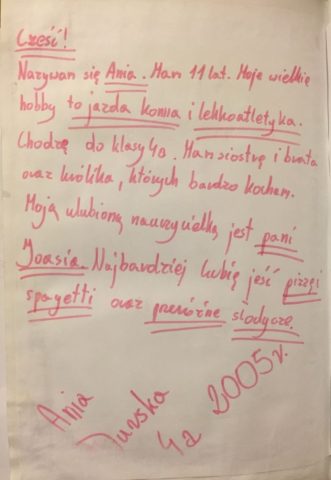 Cześć!
Nazywam się Ania. Mam 11 lat. Moje wielkie
hobby to jazda konna i lekkoatletyka.
Chodzę do klasy 4a. Mam siostrę i brata
oraz królika, których bardzo kocham.
Moją ulubioną nauczycielką jest pani
Joasia. Najbardziej lubię jeść pizzę i
spagetti oraz przeróżne słodycze.
Ania
Jurska
4a 2005 r.